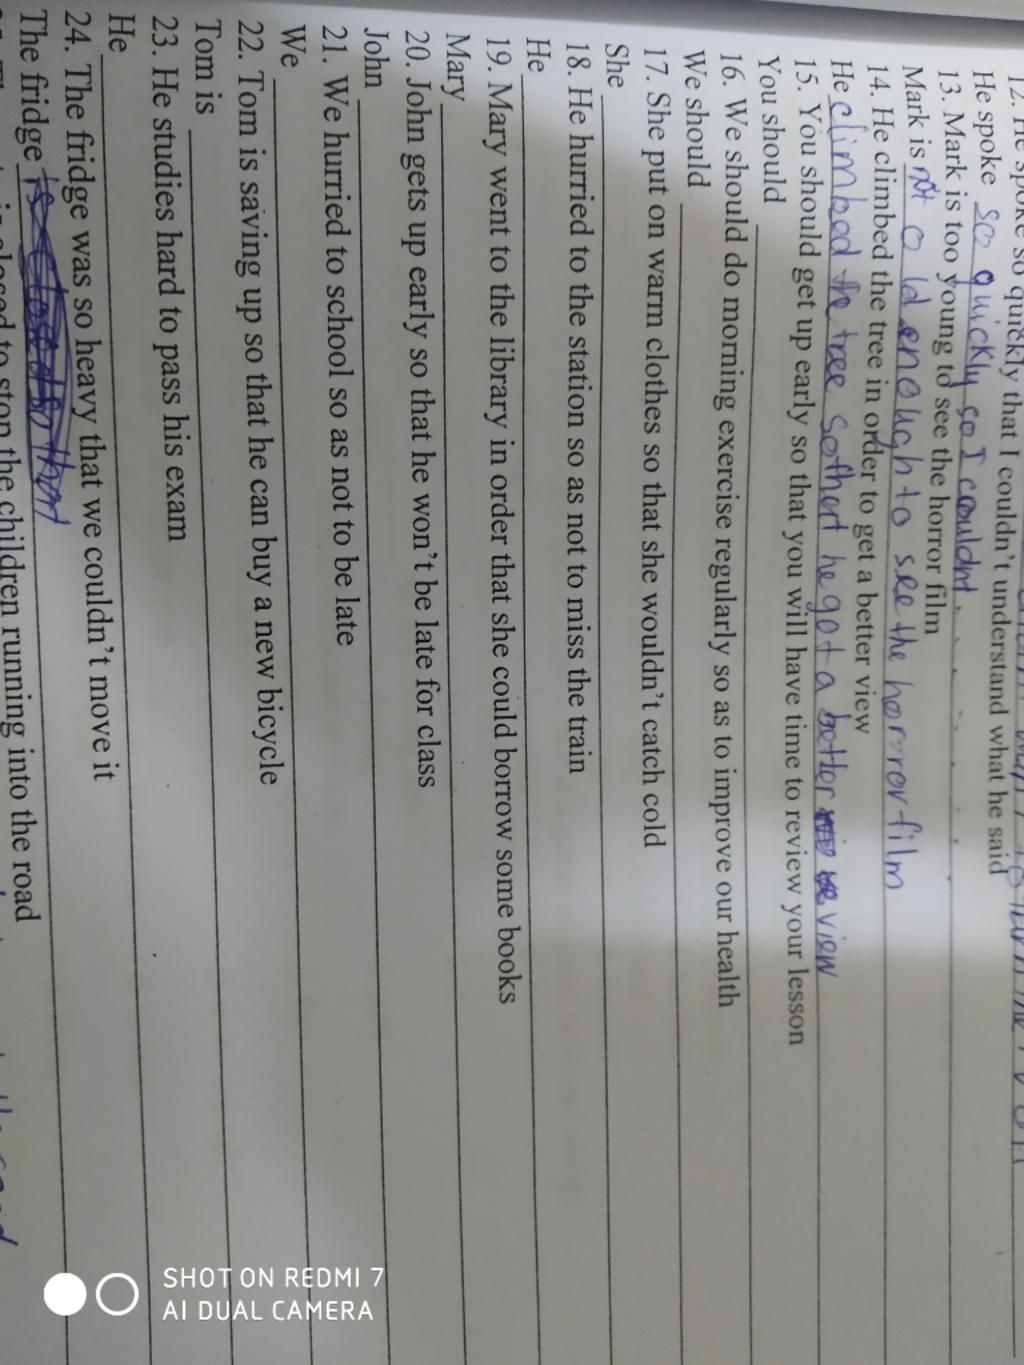 12. He spoke so quickly that I couldn't understand what he said
He spoke so quickly so I couldnt.
13. Mark is too young to see the horror film
Mark is not old enough to see the horror film
14. He climbed the tree in order to get a better view
He climbed the tree so that he got a better view
15. You should get up early so that you will have time to review your lesson
You should
16. We should do morning exercise regularly so as to improve our health
We should
17. She put on warm clothes so that she wouldn't catch cold
She
18. He hurried to the station so as not to miss the train
He
19. Mary went to the library in order that she could borrow some books
Mary
20. John gets up early so that he won't be late for class
John
21. We hurried to school so as not to be late
We
22. Tom is saving up so that he can buy a new bicycle
Tom is
23. He studies hard to pass his exam
He
24. The fridge was so heavy that we couldn't move it
The fridge
closed to stop the children running into the road
SHOT ON REDMI 7
AI DUAL CAMERA